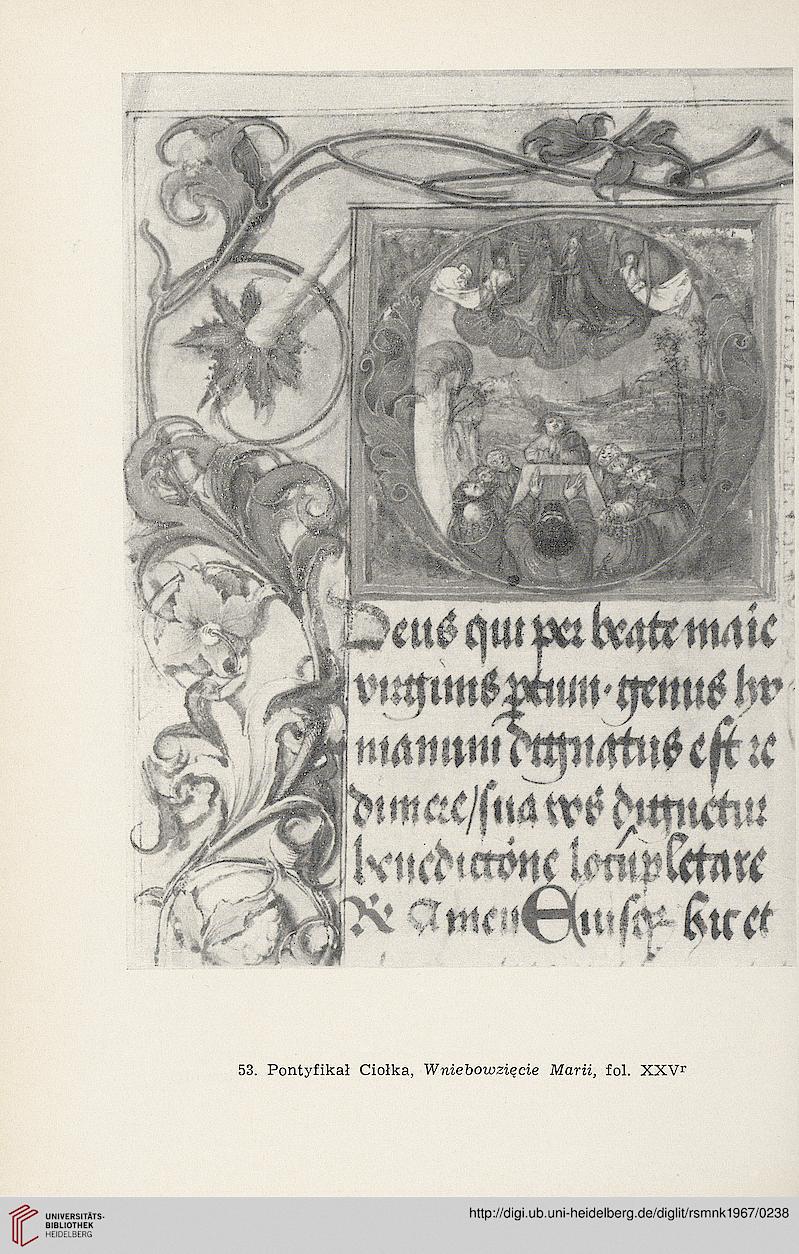 Deus qui per beate maie
virginis ptum · genus hu
manum dignatus est re
dimere / sua vos dignetur
benedictõne locũpletare
℟ Amen Eiusqȝ hic et
53. Pontyfikał Ciołka, Wniebowzięcie Marii, fol. XXVʳ
UNIVERSITÄTS-
BIBLIOTHEK
HEIDELBERG
http://digi.ub.uni-heidelberg.de/diglit/rsmnk1967/0238